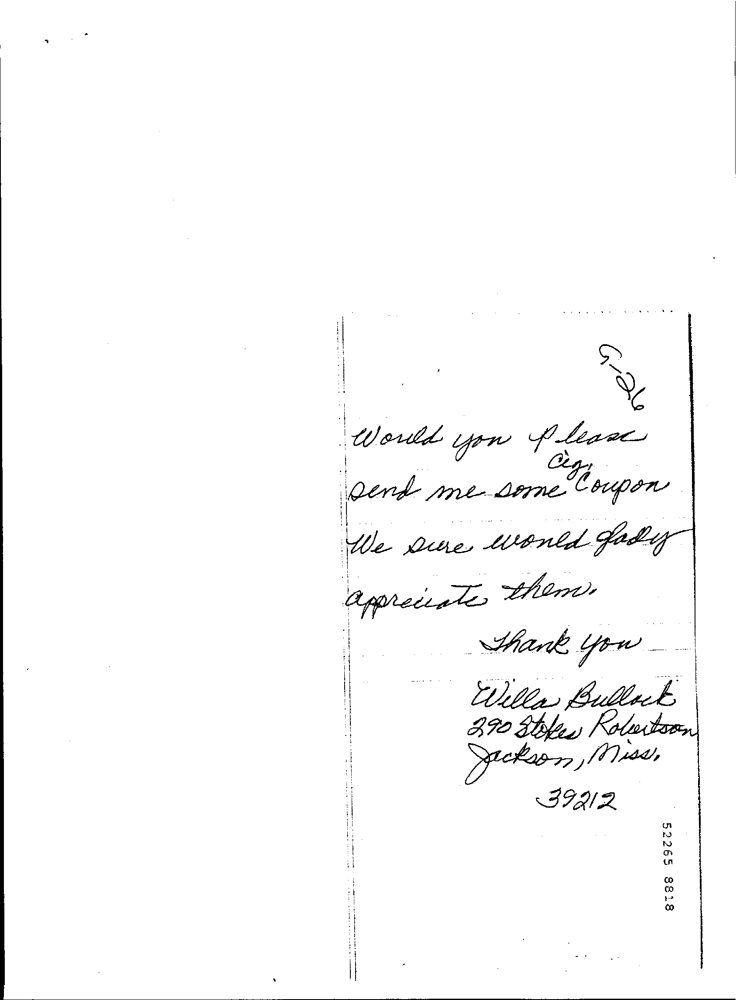 5-26
Would you Please
cig.
send me some Coupon
We sure would glady
appreciate them.
Thank you
Willa Bullock
290 Stokes Robertson
Jackson, Miss.
39212
52265 8818